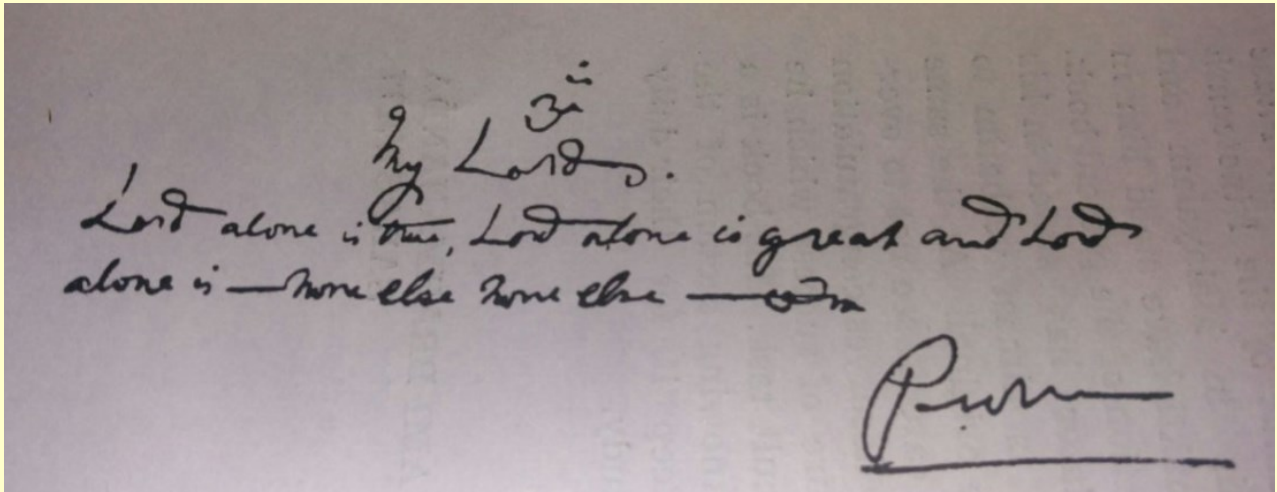 My Lord.
Lord alone is true, Lord alone is great and Lord
alone is — none else none else — om